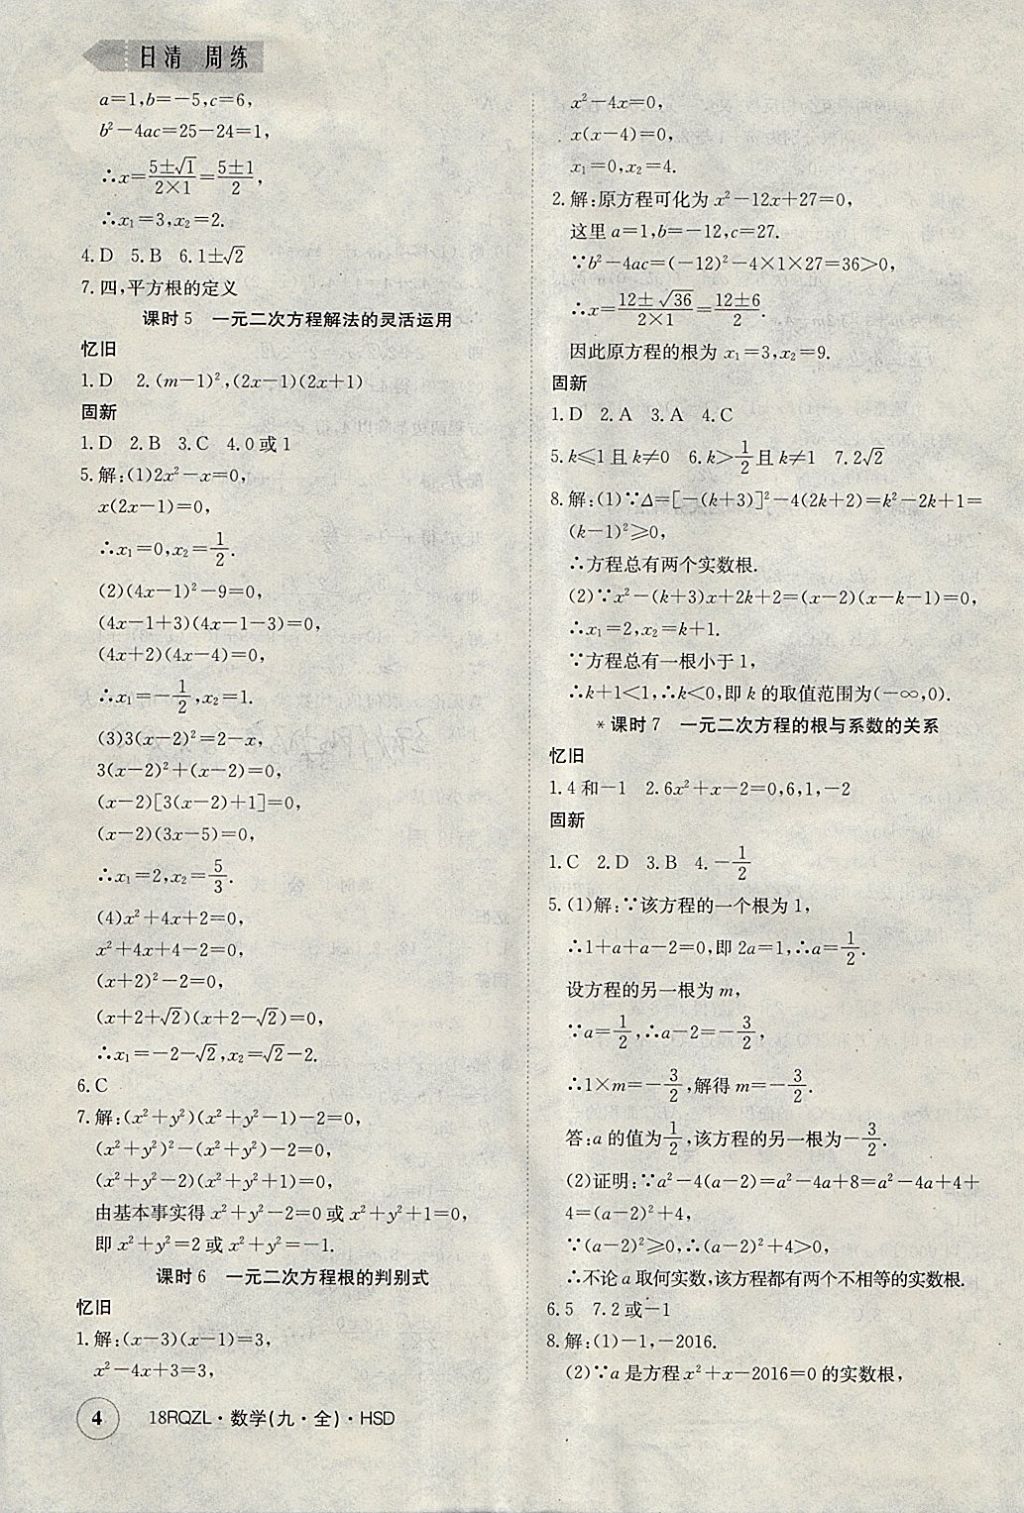 日清 周练
a=1,b=-5,c=6,
b²-4ac=25-24=1,
∴x=\frac{5±√1}{2×1}=\frac{5±1}{2},
∴x₁=3,x₂=2.
4.D 5.B 6.1±√2
7.四,平方根的定义
课时5 一元二次方程解法的灵活运用
忆旧
1.D 2.(m-1)²,(2x-1)(2x+1)
固新
1.D 2.B 3.C 4.0或1
5.解:(1)2x²-x=0,
x(2x-1)=0,
∴x₁=0,x₂=\frac{1}{2}.
(2)(4x-1)²-9=0,
(4x-1+3)(4x-1-3)=0,
(4x+2)(4x-4)=0,
∴x₁=-\frac{1}{2},x₂=1.
(3)3(x-2)²=2-x,
3(x-2)²+(x-2)=0,
(x-2)[3(x-2)+1]=0,
(x-2)(3x-5)=0,
∴x₁=2,x₂=\frac{5}{3}.
(4)x²+4x+2=0,
x²+4x+4-2=0,
(x+2)²-2=0,
(x+2+√2)(x+2-√2)=0,
∴x₁=-2-√2,x₂=√2-2.
6.C
7.解:(x²+y²)(x²+y²-1)-2=0,
(x²+y²)²-(x²+y²)-2=0,
(x²+y²-2)(x²+y²+1)=0,
由基本事实得x²+y²-2=0或x²+y²+1=0,
即x²+y²=2或x²+y²=-1.
课时6 一元二次方程根的判别式
忆旧
1.解:(x-3)(x-1)=3,
x²-4x+3=3,
x²-4x=0,
x(x-4)=0,
x₁=0,x₂=4.
2.解:原方程可化为x²-12x+27=0,
这里a=1,b=-12,c=27.
∵b²-4ac=(-12)²-4×1×27=36>0,
∴x=\frac{12±√36}{2×1}=\frac{12±6}{2}.
因此原方程的根为x₁=3,x₂=9.
固新
1.D 2.A 3.A 4.C
5.k≤1且k≠0 6.k>\frac{1}{2}且k≠1 7.2√2
8.解:(1)∵Δ=[-(k+3)]²-4(2k+2)=k²-2k+1=
(k-1)²≥0,
∴方程总有两个实数根.
(2)∵x²-(k+3)x+2k+2=(x-2)(x-k-1)=0,
∴x₁=2,x₂=k+1.
∵方程总有一根小于1,
∴k+1<1,∴k<0,即k的取值范围为(-∞,0).
*课时7 一元二次方程的根与系数的关系
忆旧
1.4和-1 2.6x²+x-2=0,6,1,-2
固新
1.C 2.D 3.B 4.-\frac{1}{2}
5.(1)解:∵该方程的一个根为1,
∴1+a+a-2=0,即2a=1,∴a=\frac{1}{2}.
设方程的另一根为m,
∵a=\frac{1}{2},∴a-2=-\frac{3}{2},
∴1×m=-\frac{3}{2},解得m=-\frac{3}{2}.
答:a的值为\frac{1}{2},该方程的另一根为-\frac{3}{2}.
(2)证明:∵a²-4(a-2)=a²-4a+8=a²-4a+4+
4=(a-2)²+4,
∵(a-2)²≥0,∴(a-2)²+4>0,
∴不论a取何实数,该方程都有两个不相等的实数根.
6.5 7.2或-1
8.解:(1)-1,-2016.
(2)∵a是方程x²+x-2016=0的实数根,
4 18RQZL·数学(九·全)·HSD